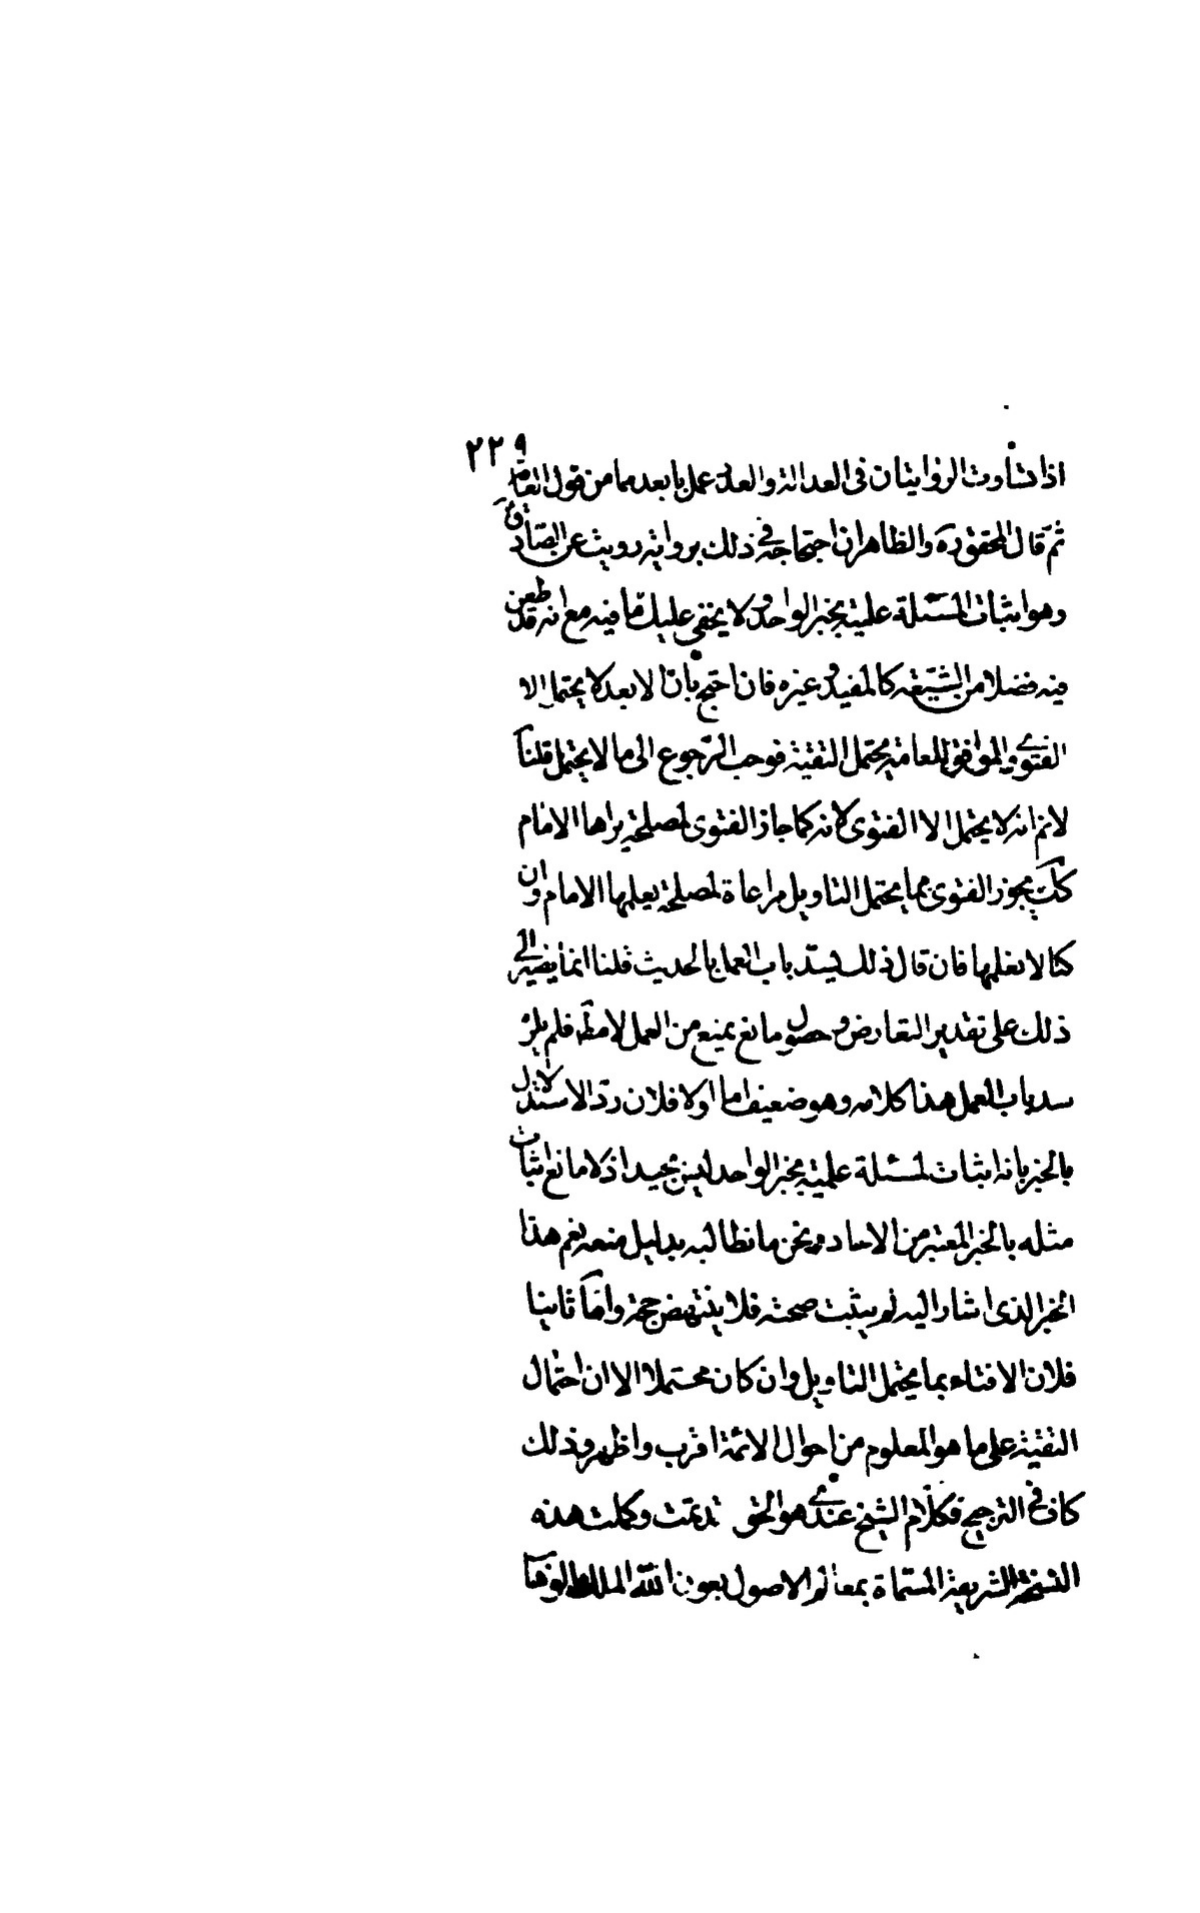 ٢٢٩
اذا تساوت الروايتان فى العدالة والعدد عمل بابعدهما من قول العامة
ثم قال المحقق ره والظاهر ان احتجاجه فى ذلك برواية رويت عن الصادق
وهو اثبات لمسئلة علمية بخبر الواحد ولا يخفى عليك ما فيه مع انه قد طعن
فيه فضلاء من الشيعة كالمفيد وغيره فان احتج بان الابعد لا يحتمل الا
الفتوى والموافق للعامة يحتمل التقية فوجب الرجوع الى ما لا يحتمل قلنا
لانم انه لا يحتمل الا الفتوى لانه كما جاز الفتوى لمصلحة يراها الامام
كك يجوز الفتوى بما يحتمل التاويل مراعاة لمصلحة يعلمها الامام وان
كنا لا نعلمها فان قال ذلك يسد باب العمل بالحديث قلنا انما نصير الى
ذلك على تقدير التعارض وحصول مانع يمنع من العمل لا مط فلم يلزم
سد باب العمل هذا كلامه وهو ضعيف اما اولا فلان رد الاستدلال
بالخبر بانه اثبات لمسئلة علمية بخبر الواحد ليس بجيد اذ لا مانع اثبات
مثله بالخبر المعتبر من الاحاد ونحن ما نطالبه بدليل منعه نعم هذا
الخبر الذى اشار اليه لم يثبت صحته فلا ينتهض حجة واما ثانيا
فلان الافتاء بما يحتمل التاويل وان كان محتملا الا ان احتمال
التقية على ما هو المعلوم من احوال الائمة اقرب واظهر وذلك
كاف فى الترجيح فكلام الشيخ عندى هو الحق قد تمت وكملت هذه
النسخة الشريفة المسماة بمعالم الاصول بعون الله الملك الوهاب